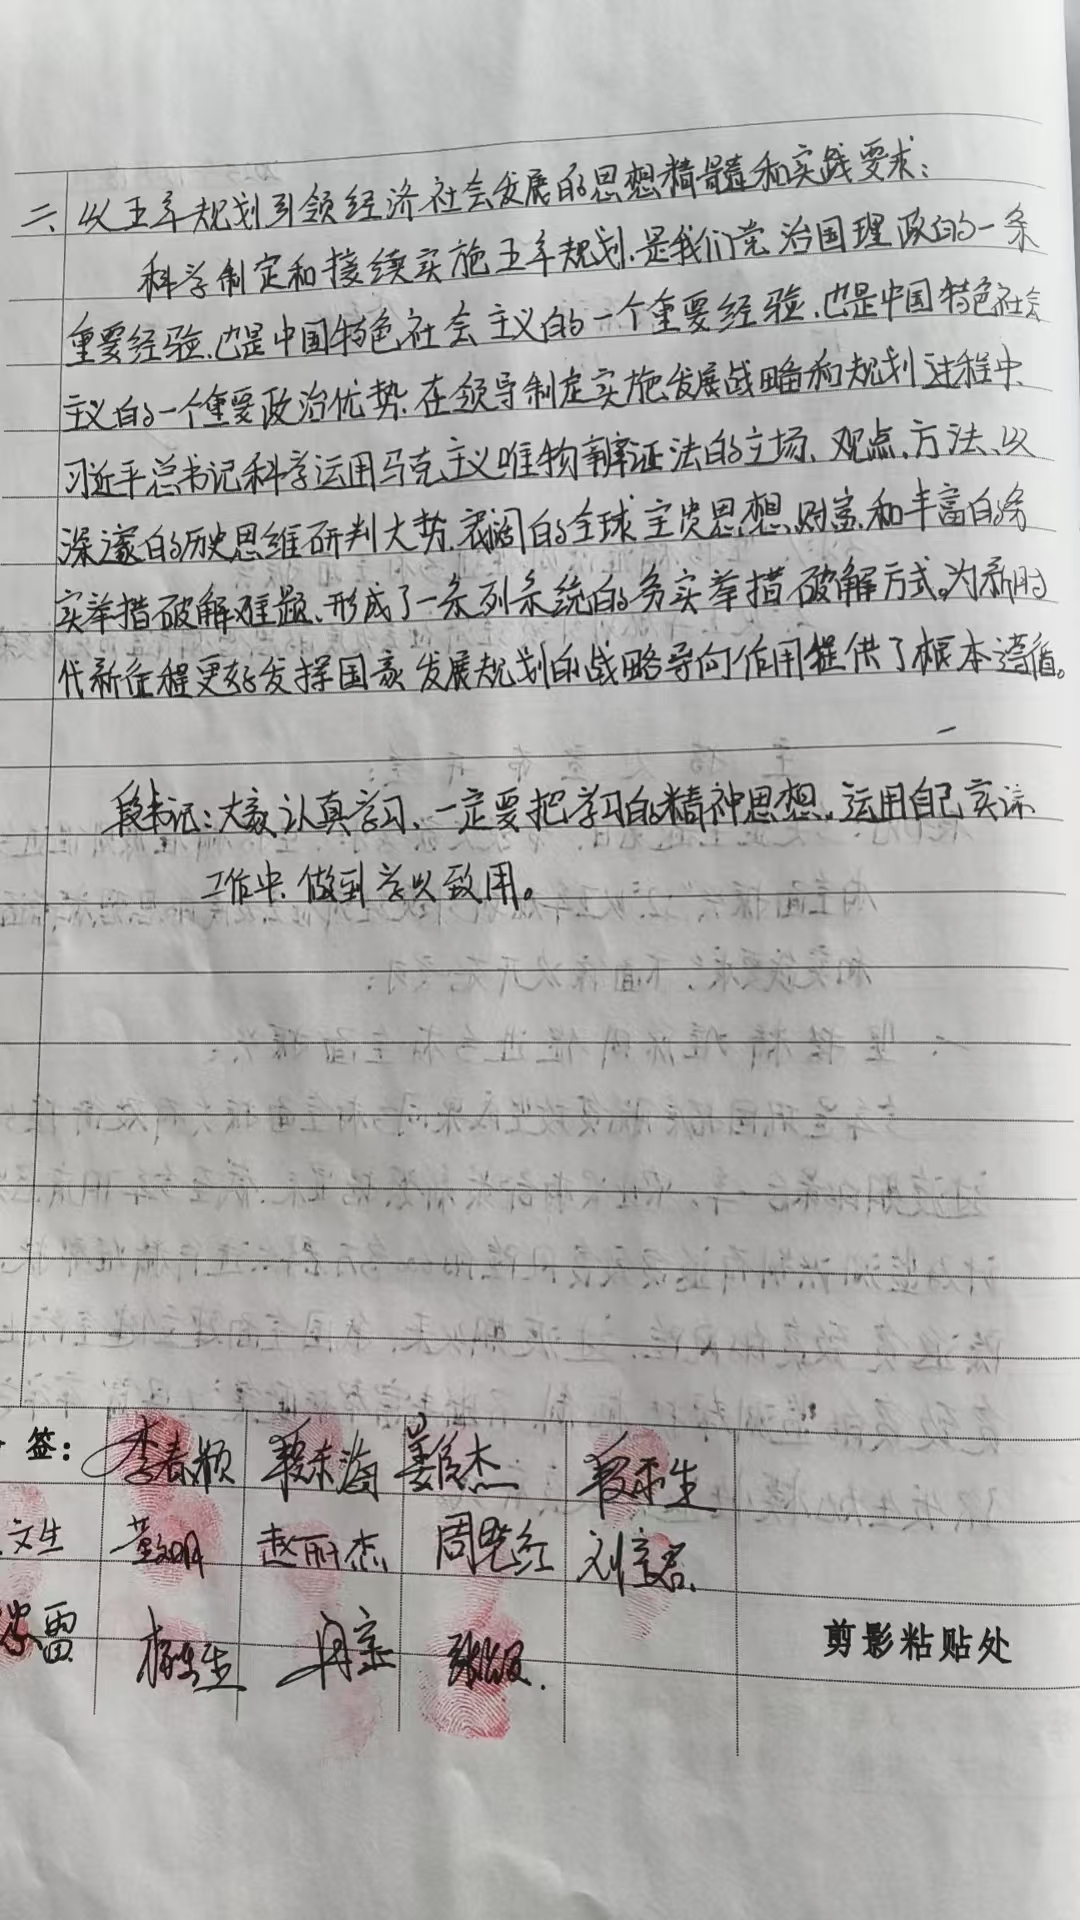 二、以五年规划引领经济社会发展的思想精髓和实践要求：
科学制定和接续实施五年规划、是我们党治国理政的一条
重要经验、也是中国特色社会主义的一个重要经验、也是中国特色社会
主义的一个重要政治优势、在领导制定实施发展战略和规划过程中、
习近平总书记科学运用马克主义唯物辩证法的立场、观点、方法、以
深邃的历史思维研判大势、的全球思想、财富、和丰富的务
实举措破解难题、形成了一条列系统的务实举措破解方式。为新时
代新征程更好发挥国家发展规划的战略导向作用提供了根本遵循。
段书记：大家认真学习、一定要把学习的精神思想。运用自己实际
工作中、做到学以致用。
签： 李春颖 段东海 姜杰 段生
文生 董明 赵丽杰 周红 刘
雷 生
剪影粘贴处